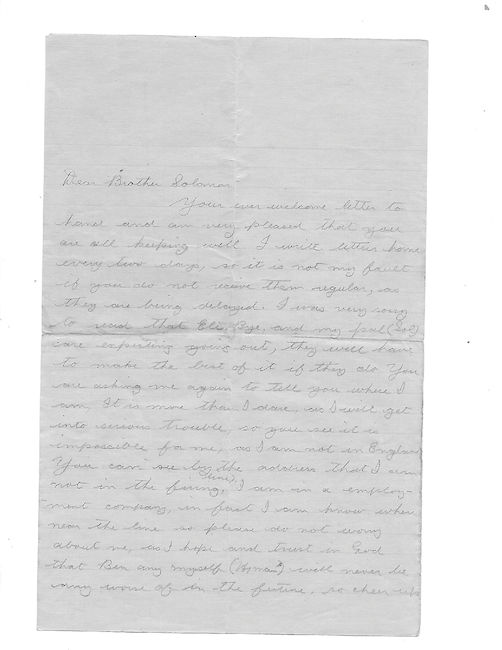 Dear Brother Soloman
Your ever welcome letter to
hand and am very pleased that you
are all keeping well. I write letter home
every two days, so it is not my fault
if you do not receive them regular, as
they are being delayed. I was very sorry
to read that Eli, and my pal (Sol)
are expecting going out, they will have
to make the best of it if they do You
are asking me again to tell you where I
am, It is more than I dare, as I will get
into serious trouble, so you see it is
impossible for me, as I am not in England
You can see by the address that I am
not in the firing (line). I am in a employ-
ment company, in fact I am know where
near the line so please do not worry
about me, as I hope and trust in God
that Ben any myself (Hyman) will never be
any worse of in the future, so cheer up